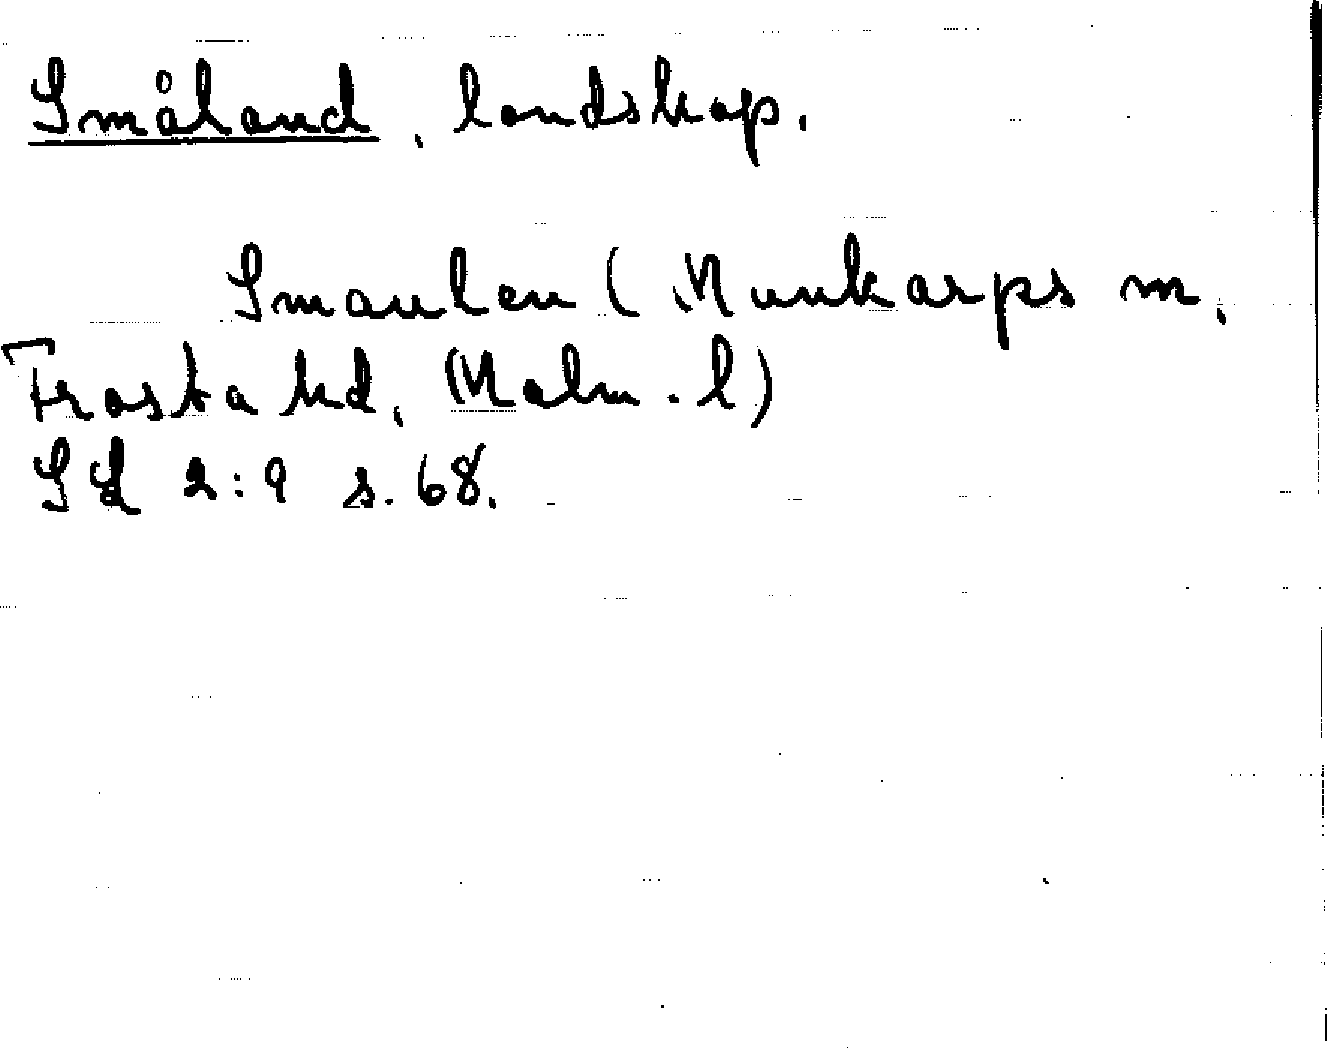 Småland, landskap.
Smaulen (Munkarps m,
Frosta hd, Malm. l)
SL 2:9 s. 68.